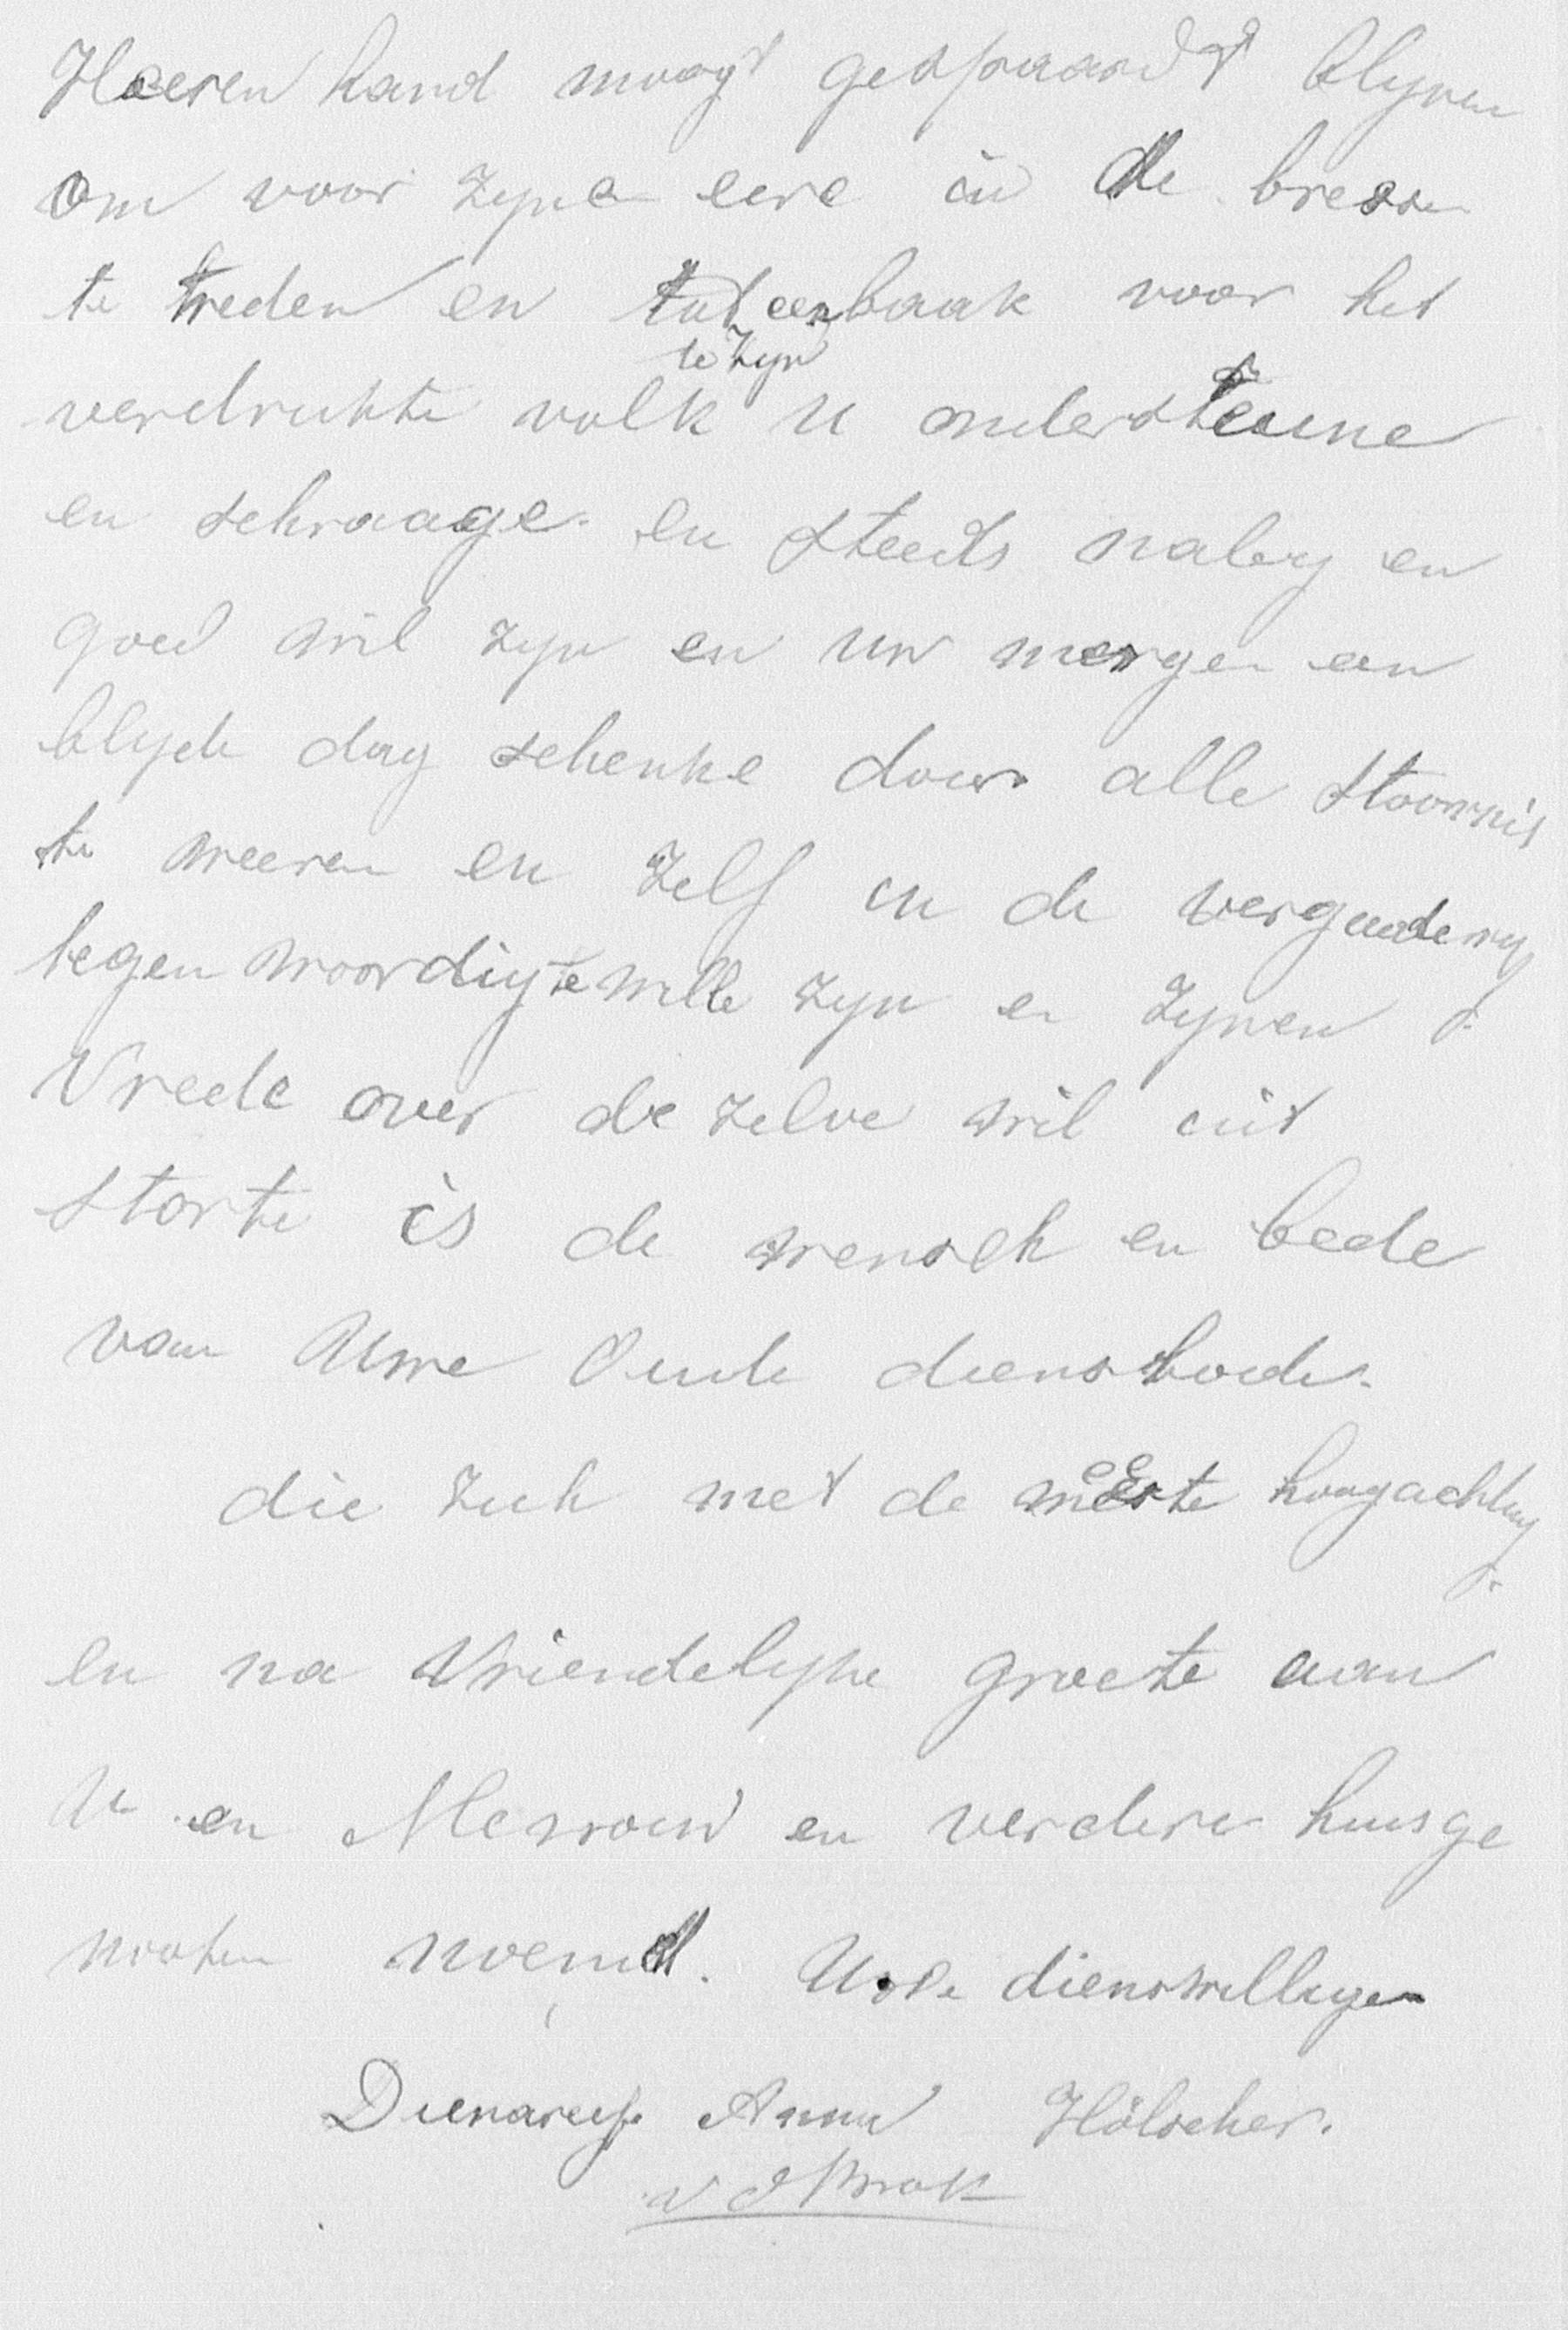 Heeren hand moogt gespaardt blyven
om voor zyne eere in de bresse
te treden en tot een baak voor het
te zyn
verdrukte volk u ondersteune
en schraage en steeds naby en
goed wil zyn en uw morgen een
blyde dag schenke door alle stoornis
te weeren en zelf in de vergadering
tegenwoordig te wille zyn en zynen
Vrede over de zelve wil uit
storte is de wensch en bede
van Uwe Oude dienstbode
die zich met de meeste hoogachting
en na Vriendelyke groete aan
U en Mevrouw en verdere huisge
nooten noemd. UwE dienswillige
Dienares Anna Hölscher.